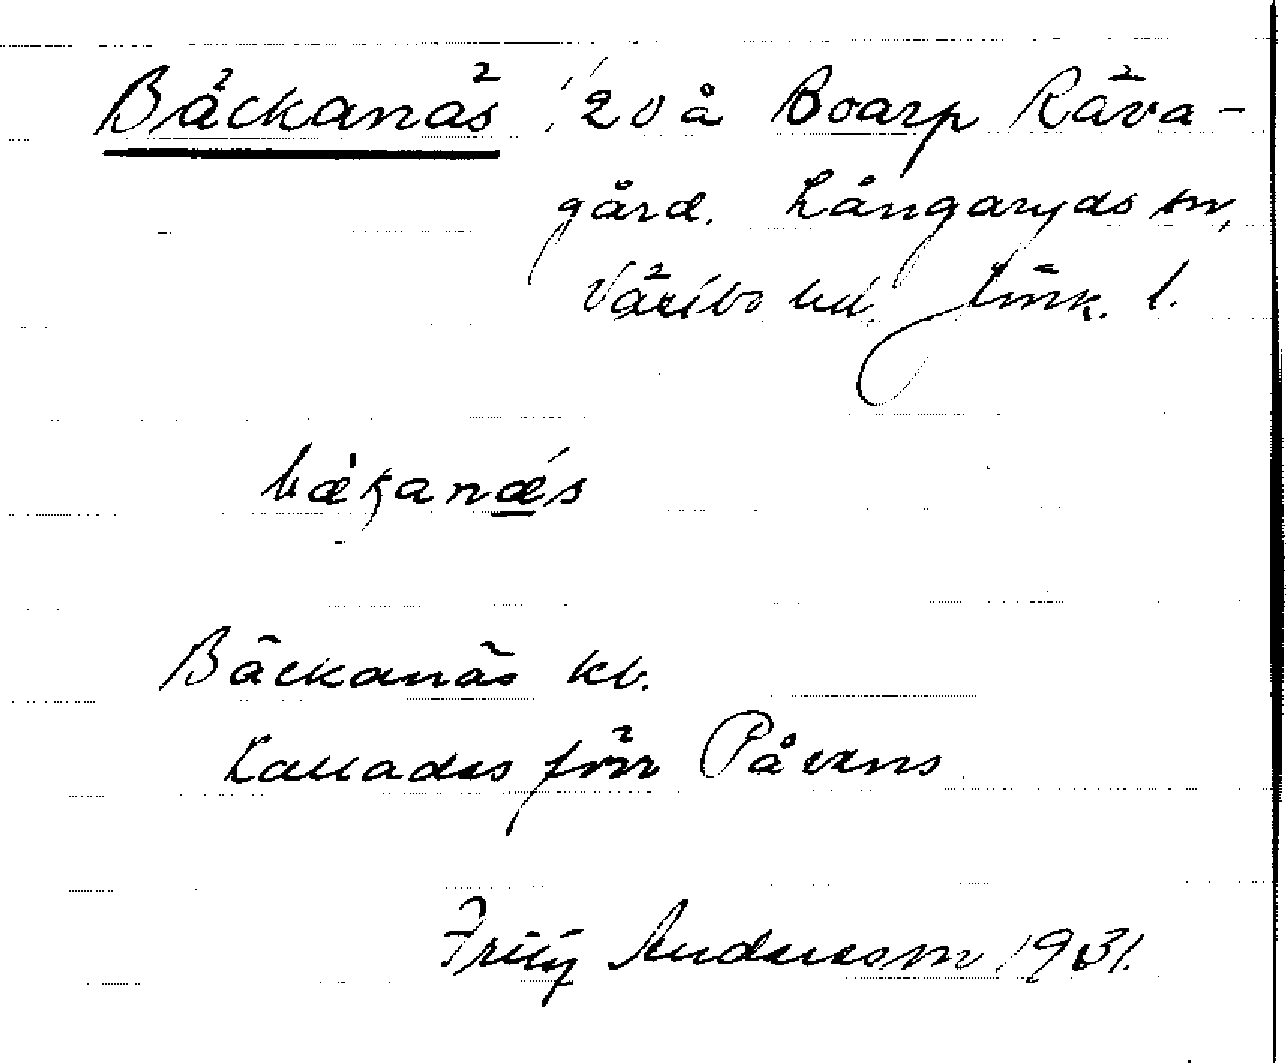 Bäckanäs 1/20 å Boarp Räva-
gård. Långaryds sn,
Västbo hd. Jönk. l.
bækanæs
Bäckanäs kb.
Kallades förr Påvens
Fritz Andersson 1931.